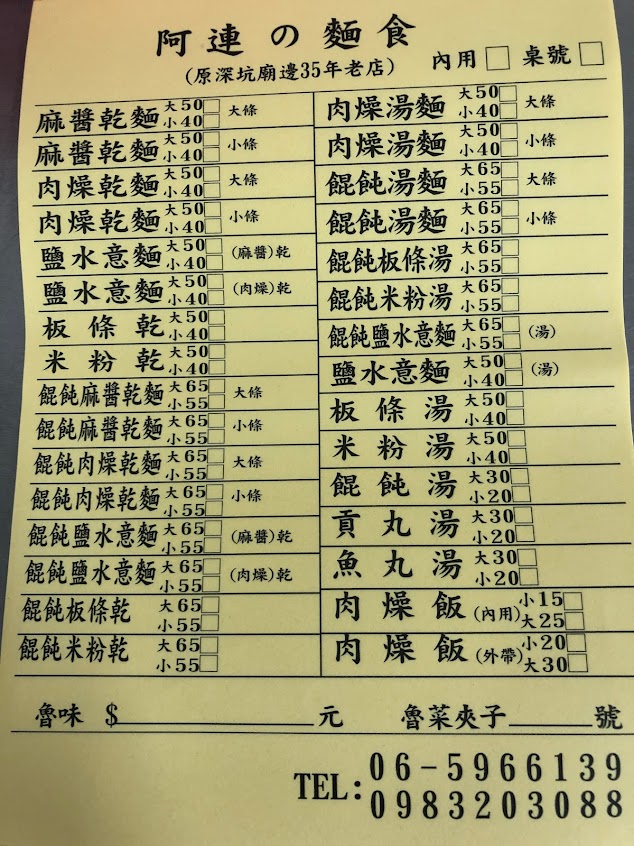 阿連の麵食
(原深坑廟邊35年老店)
內用 □ 桌號 □
麻醬乾麵 大50□ 小40□ 大條
麻醬乾麵 大50□ 小40□ 小條
肉燥乾麵 大50□ 小40□ 大條
肉燥乾麵 大50□ 小40□ 小條
鹽水意麵 大50□ 小40□ (麻醬)乾
鹽水意麵 大50□ 小40□ (肉燥)乾
板條乾 大50□ 小40□
米粉乾 大50□ 小40□
餛飩麻醬乾麵 大65□ 小55□ 大條
餛飩麻醬乾麵 大65□ 小55□ 小條
餛飩肉燥乾麵 大65□ 小55□ 大條
餛飩肉燥乾麵 大65□ 小55□ 小條
餛飩鹽水意麵 大65□ 小55□ (麻醬)乾
餛飩鹽水意麵 大65□ 小55□ (肉燥)乾
餛飩板條乾 大65□ 小55□
餛飩米粉乾 大65□ 小55□
肉燥湯麵 大50□ 小40□ 大條
肉燥湯麵 大50□ 小40□ 小條
餛飩湯麵 大65□ 小55□ 大條
餛飩湯麵 大65□ 小55□ 小條
餛飩板條湯 大65□ 小55□
餛飩米粉湯 大65□ 小55□
餛飩鹽水意麵 大65□ 小55□ (湯)
鹽水意麵 大50□ 小40□ (湯)
板條湯 大50□ 小40□
米粉湯 大50□ 小40□
餛飩湯 大30□ 小20□
貢丸湯 大30□ 小20□
魚丸湯 大30□ 小20□
肉燥飯(內用) 小15□ 大25□
肉燥飯(外帶) 小20□ 大30□
魯味 $＿＿＿＿元 魯菜夾子＿＿＿號
TEL: 06-5966139
0983203088